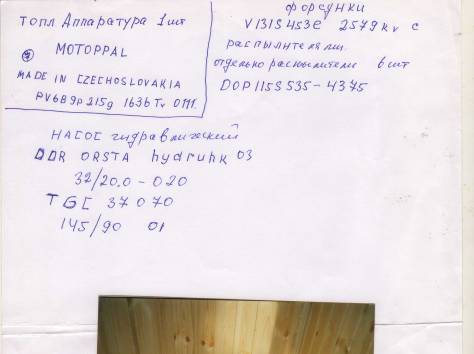 ТОПЛ Аппаратура 1 шт
MOTOPPAL
MADE IN CZECHOSLOVAKIA
PV6B9P215g 1636 Tv 0111.
форсунки
V131S453E 2579 KV С
распылителями.
отдельно распылители 6 шт
DOP115S535-4375
НАСОС гидравлический
DDR ORSTA hydruhk 03
32/20.0-020
TGL 37070
145/90 01